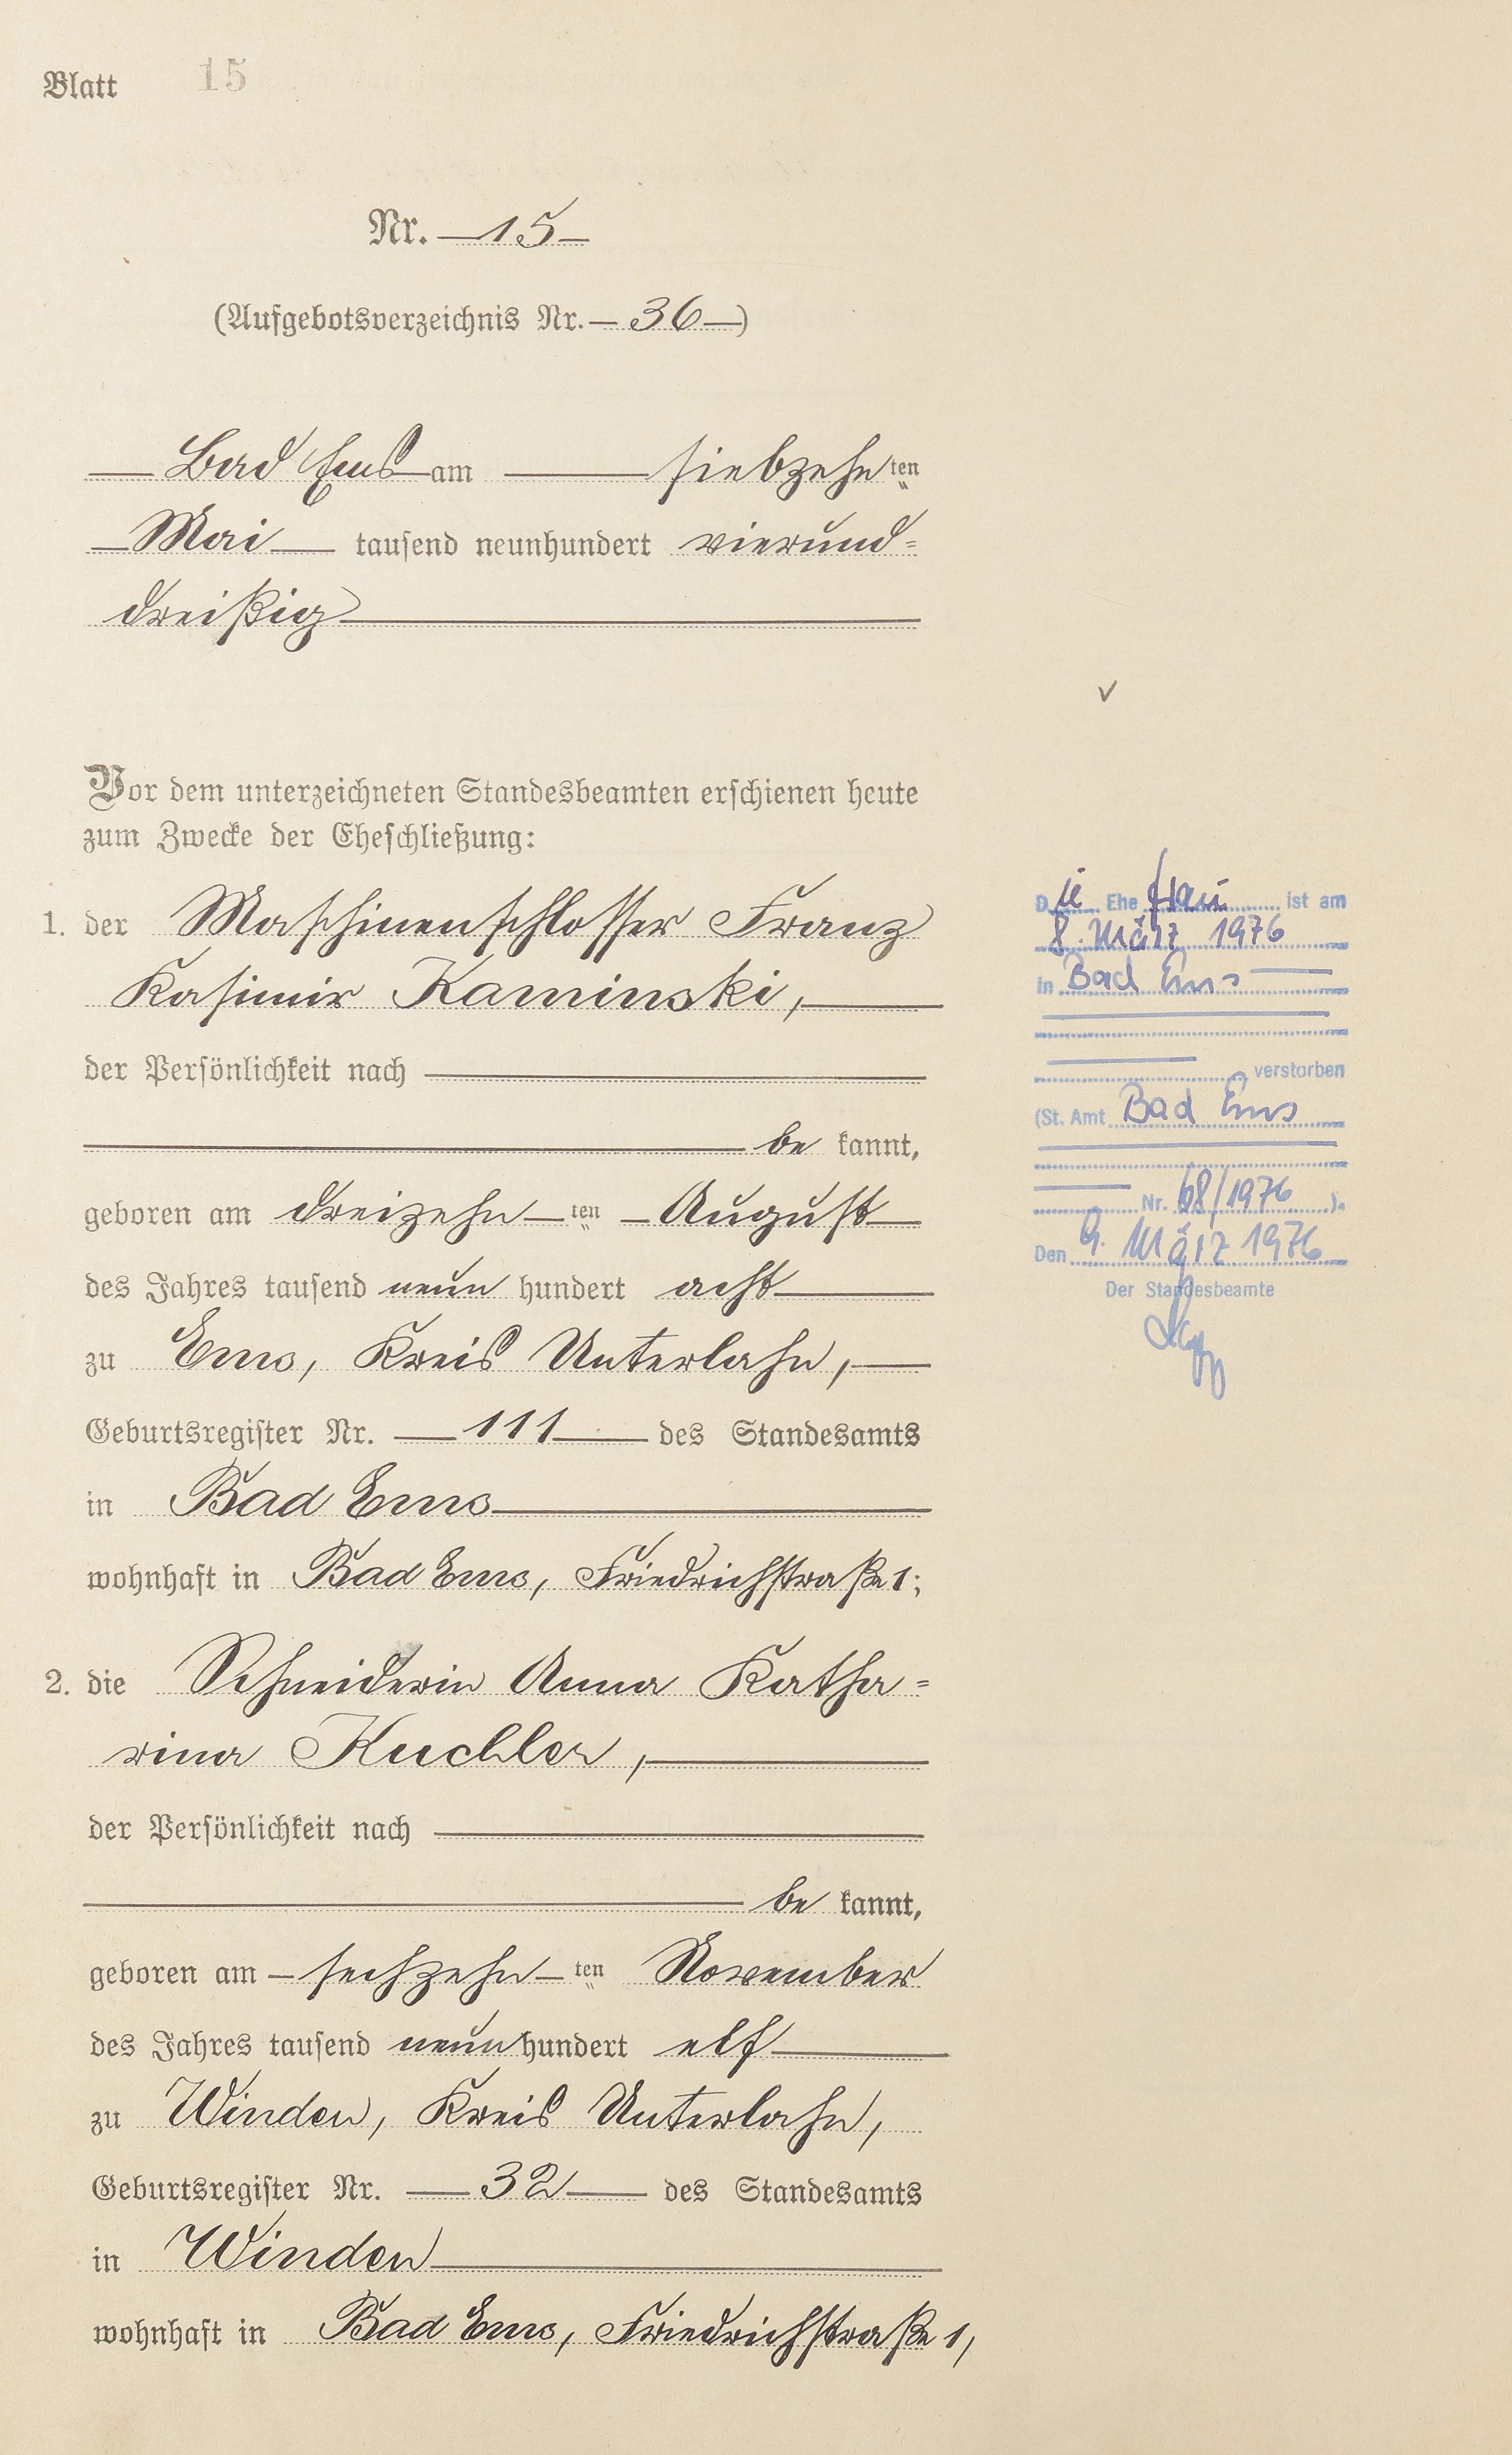 Blatt 15
Nr. 15
(Aufgebotsverzeichnis Nr. 36)
Bad Ems am siebzehnten
Mai tausend neunhundert vierund=
dreißig
Vor dem unterzeichneten Standesbeamten erschienen heute
zum Zwecke der Eheschließung:
1. der Maschinenschlosser Franz
Kasimir Kaminski,
der Persönlichkeit nach
be kannt,
geboren am dreizehn ten August
des Jahres tausend neun hundert acht
zu Ems, Kreis Unterlahn,
Geburtsregister Nr. 111 des Standesamts
in Bad Ems
wohnhaft in Bad Ems, Friedrichstraße 1;
2. die Schneiderin Anna Katha=
rina Kuchler,
der Persönlichkeit nach
be kannt,
geboren am sechzehn ten November
des Jahres tausend neun hundert elf
zu Winden, Kreis Unterlahn,
Geburtsregister Nr. 32 des Standesamts
in Winden
wohnhaft in Bad Ems, Friedrichstraße 1,
Die Ehefrau ist am
8. März 1976
in Bad Ems
verstorben
(St. Amt Bad Ems
Nr. 68/1976 ).
Den 9. März 1976
Der Standesbeamte